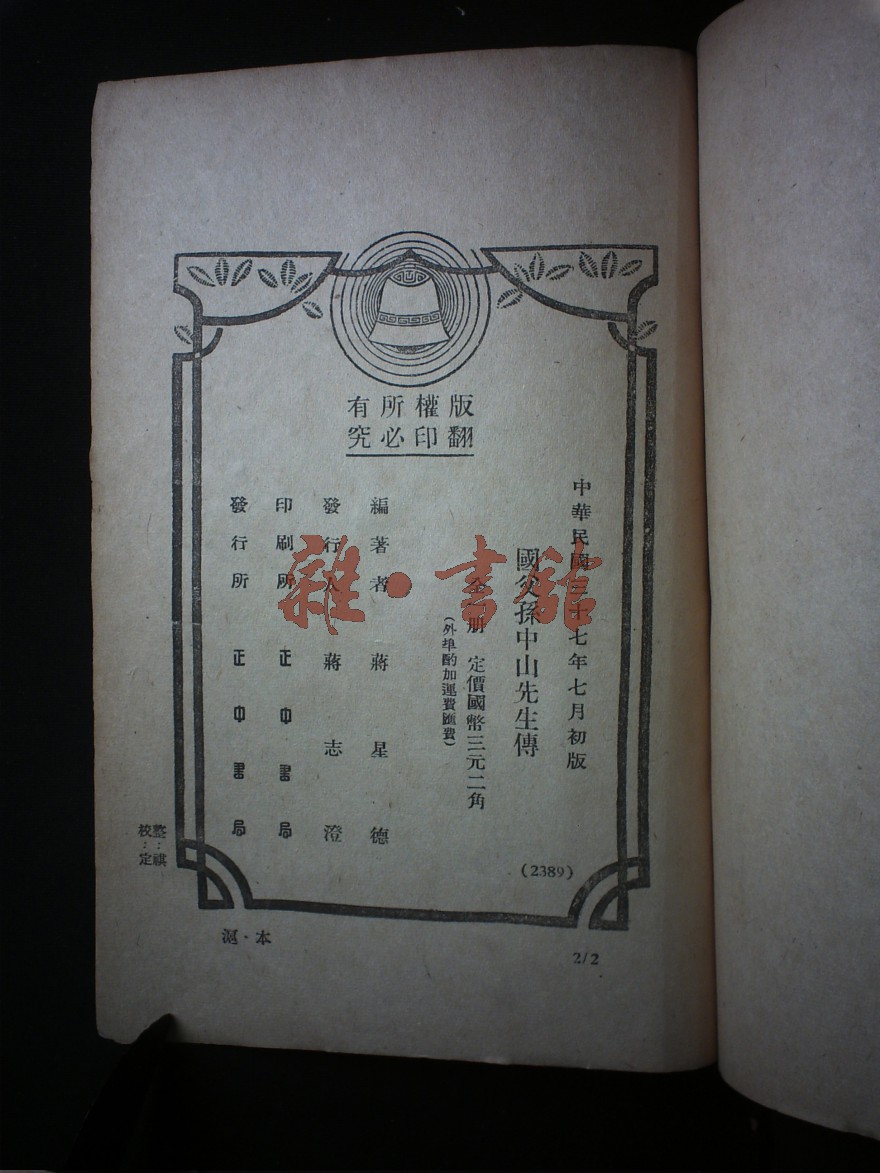 版權所有
翻印必究
中華民國三十七年七月初版
國父孫中山先生傳
全册 定價國幣三元二角
(外埠酌加運費匯費)
編著者 蔣星德
發行人 蔣志澄
印刷所 正中書局
發行所 正中書局
(2389)
整：祺
校：定
滬·本
2/2
雜·書館